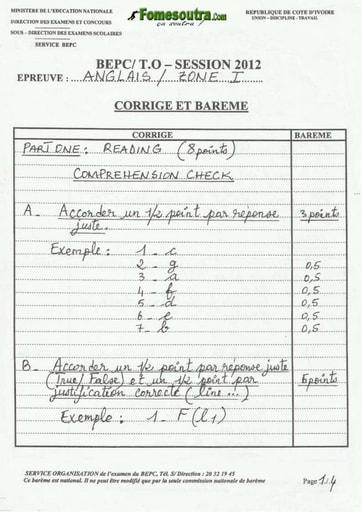 MINISTERE DE L'EDUCATION NATIONALE
DIRECTION DES EXAMENS ET CONCOURS
SOUS – DIRECTION DES EXAMENS SCOLAIRES
SERVICE BEPC
Fomesoutra.com
ça soutra !
REPUBLIQUE DE COTE D'IVOIRE
UNION – DISCIPLINE - TRAVAIL
BEPC/ T.O – SESSION 2012
EPREUVE : ANGLAIS / ZONE I
CORRIGE ET BAREME
CORRIGE BAREME
PART ONE: READING (8 points)
COMPREHENSION CHECK
A_ Accorder un 1/2 point par réponse 3 points
juste.
Exemple : 1 _ c
2 _ g 0,5
3 _ a 0,5
4 _ f 0,5
5 _ d 0,5
6 _ e 0,5
7 _ b 0,5
B_ Accorder un 1/2 point par réponse juste
(True/False) et un 1/2 point par 5 points
justification correcte (line ...)
Exemple : 1 _ F (l1)
SERVICE ORGANISATION de l'examen du BEPC, Tél. S/ Direction : 20 32 19 45
Ce barème est national. Il ne peut être modifié que par la seule commission nationale de barème
Page 1/4